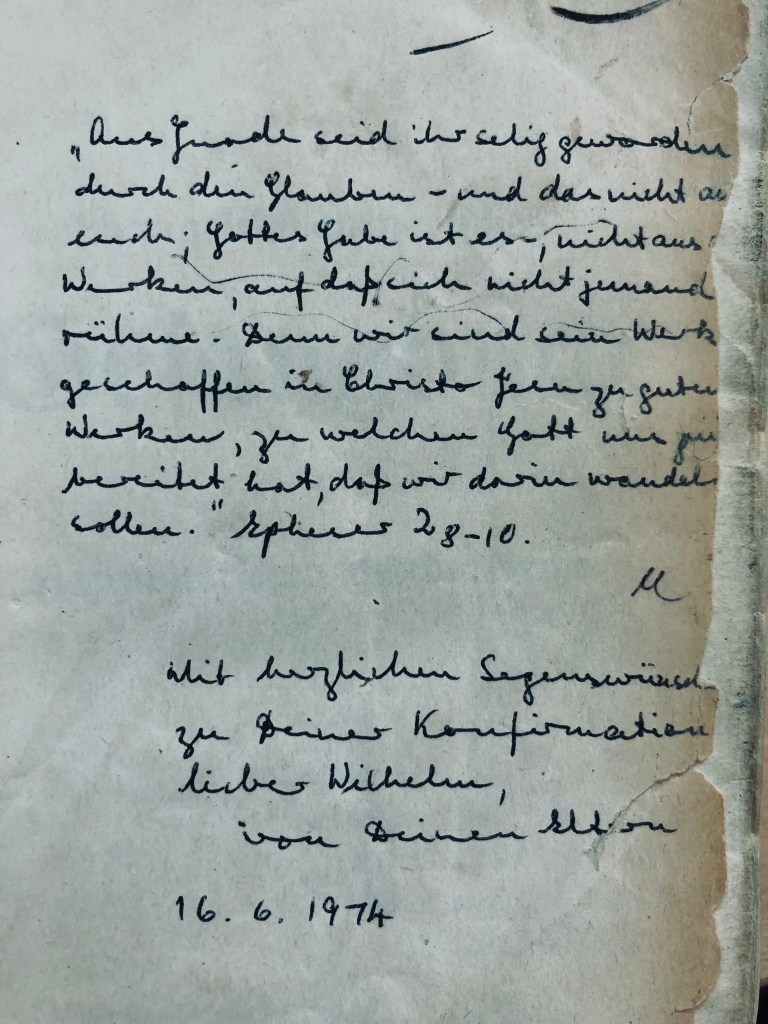 „Aus Gnade seid ihr selig geworden
durch den Glauben – und das nicht au
euch; Gottes Gabe ist es –, nicht aus
Werken, auf daß sich nicht jemand
rühme. Denn wir sind sein Werk
geschaffen in Christo Jesu zu guten
Werken, zu welchen Gott uns zu
bereitet hat, daß wir darin wandel
sollen." Epheser 2 8-10.
Mit herzlichen Segenswünsch
zu Deiner Konfirmation
lieber Wilhelm,
von Deinen Eltern
16. 6. 1974